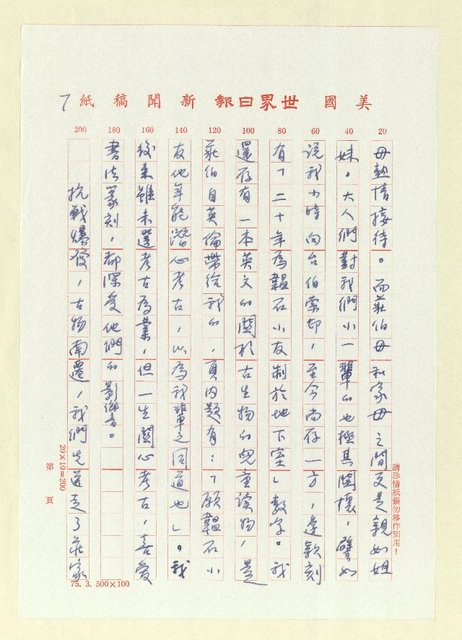 美國世界日報新聞稿紙
7
20 40 60 80 100 120 140 160 180 200
母熱情接待。而莊伯母和家母之間更是親如姐
妹。大人們對我們小一輩的也極其關懷,譬如
說我小時向台伯索印,至今尚存一方,邊款刻
有「二十年為韞石小友制於地下室」數字。我
還存有一本英文的關於古生物的兒童讀物,是
莊伯自英倫帶給我的,頁內題有:「願韞石小
友他年能潛心考古,以為我輩之同道也」。我
後來雖未選考古為業,但一生關心考古,喜愛
書法篆刻,都深受他們的影響。
抗戰爆發,古物南遷,我們先送走了莊家
請珍惜紙張勿移作別用!
第 頁
20×10=200
75. 3. 500×100